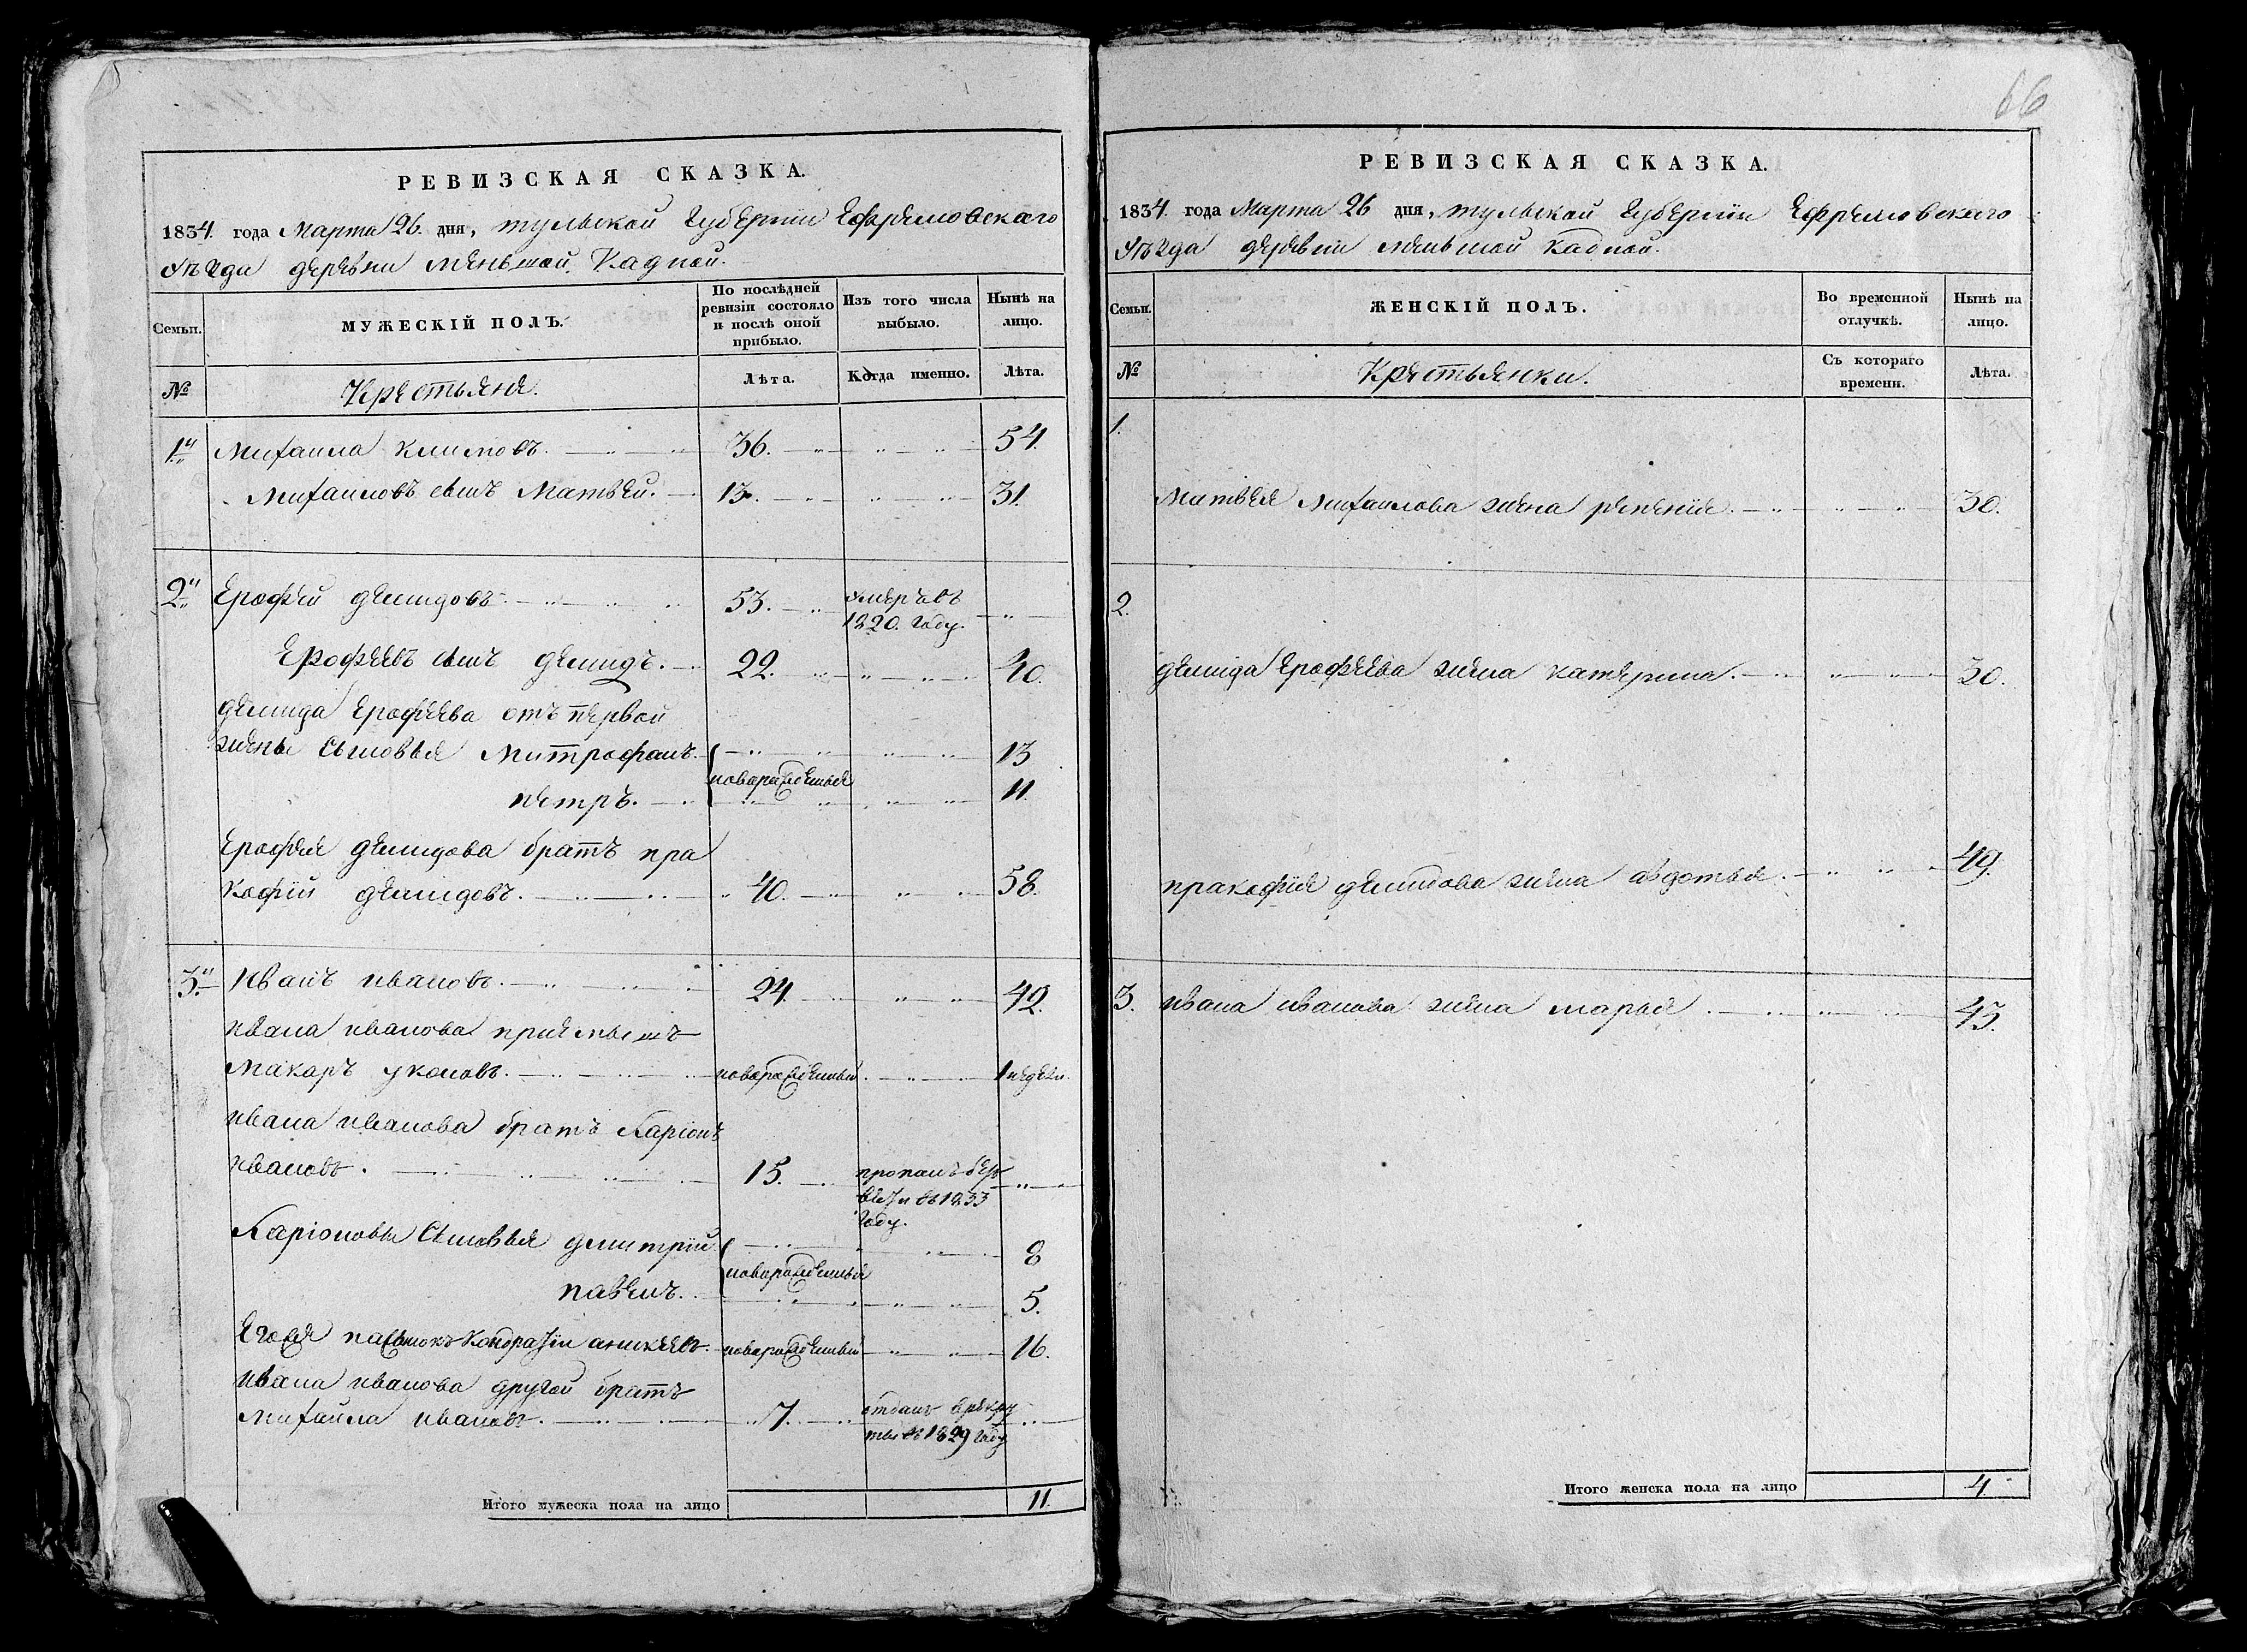 РЕВИЗСКАЯ СКАЗКА.
1834. года Марта 26. дня, тульской Губернiи Ефремовскаго
Уѣзда деревни меньшой Кадной.
Семьи.
МУЖЕСКІЙ ПОЛЪ.
По послѣдней ревизіи состояло и послѣ оной прибыло.
Изъ того числа выбыло.
Нынѣ на лицо.
№
Крестьяне.
Лѣта.
Когда именно.
Лѣта.
1й Михаила климовъ. 36. 54.
Михаиловъ сынъ Матвей. 13. 31.
2й Ерофей демидовъ. 53. умеръ въ 1820. Году.
Ерофеевъ сынъ демидъ. 22. 40.
демида Ерофеева отъ первой
жены сыновья Митрофанъ. 13
новорожденныя
петръ. 11.
Ерофея демидова братъ пра
кофiй демидовъ. 40. 58.
3й Иванъ ивановъ. 24. 42.
ивана иванова приемышъ
Макаръ уколовъ. новорожденный. 1 недели.
ивана иванова братъ Ларіонъ
ивановъ. 15. пропалъ без вести въ 1833 Году.
Ларіоновы Сыновья дмитрiй 8
новорожденныя
павелъ. 5.
Егожа пасынокъ Кондратiй аникеевъ. новорожденный 16.
ивана иванова другой братъ
михаила ивановъ. 7. отданъ врекру ты въ 1829 Году
Итого мужеска пола на лицо 11.
66
РЕВИЗСКАЯ СКАЗКА.
1834. года Марта 26 дня, тульской Губернiи Ефремовскаго
Уѣзда деревни меньшой Кадной.
Семьи.
ЖЕНСКІЙ ПОЛЪ.
Во временной отлучкѣ.
Нынѣ на лицо.
№
Крестьянки.
Съ котораго времени.
Лѣта.
1.
Матвея Михаилова жена 30.
2.
демида Ерофеева жена катерина. 30.
пракофiя демидова жена авдотья. 49.
3. ивана иванова жена марья. 43.
Итого женска пола на лицо 4.